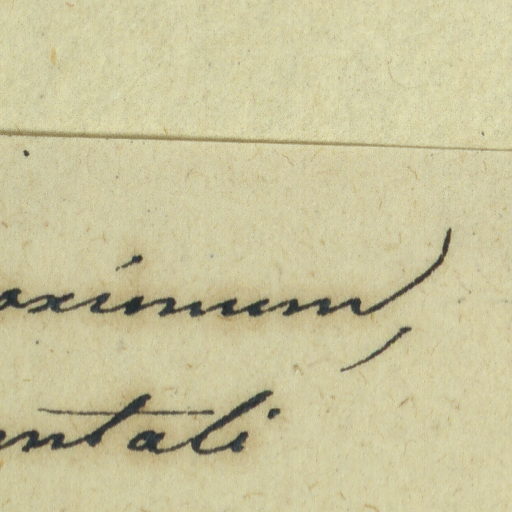 aximum,
ntali